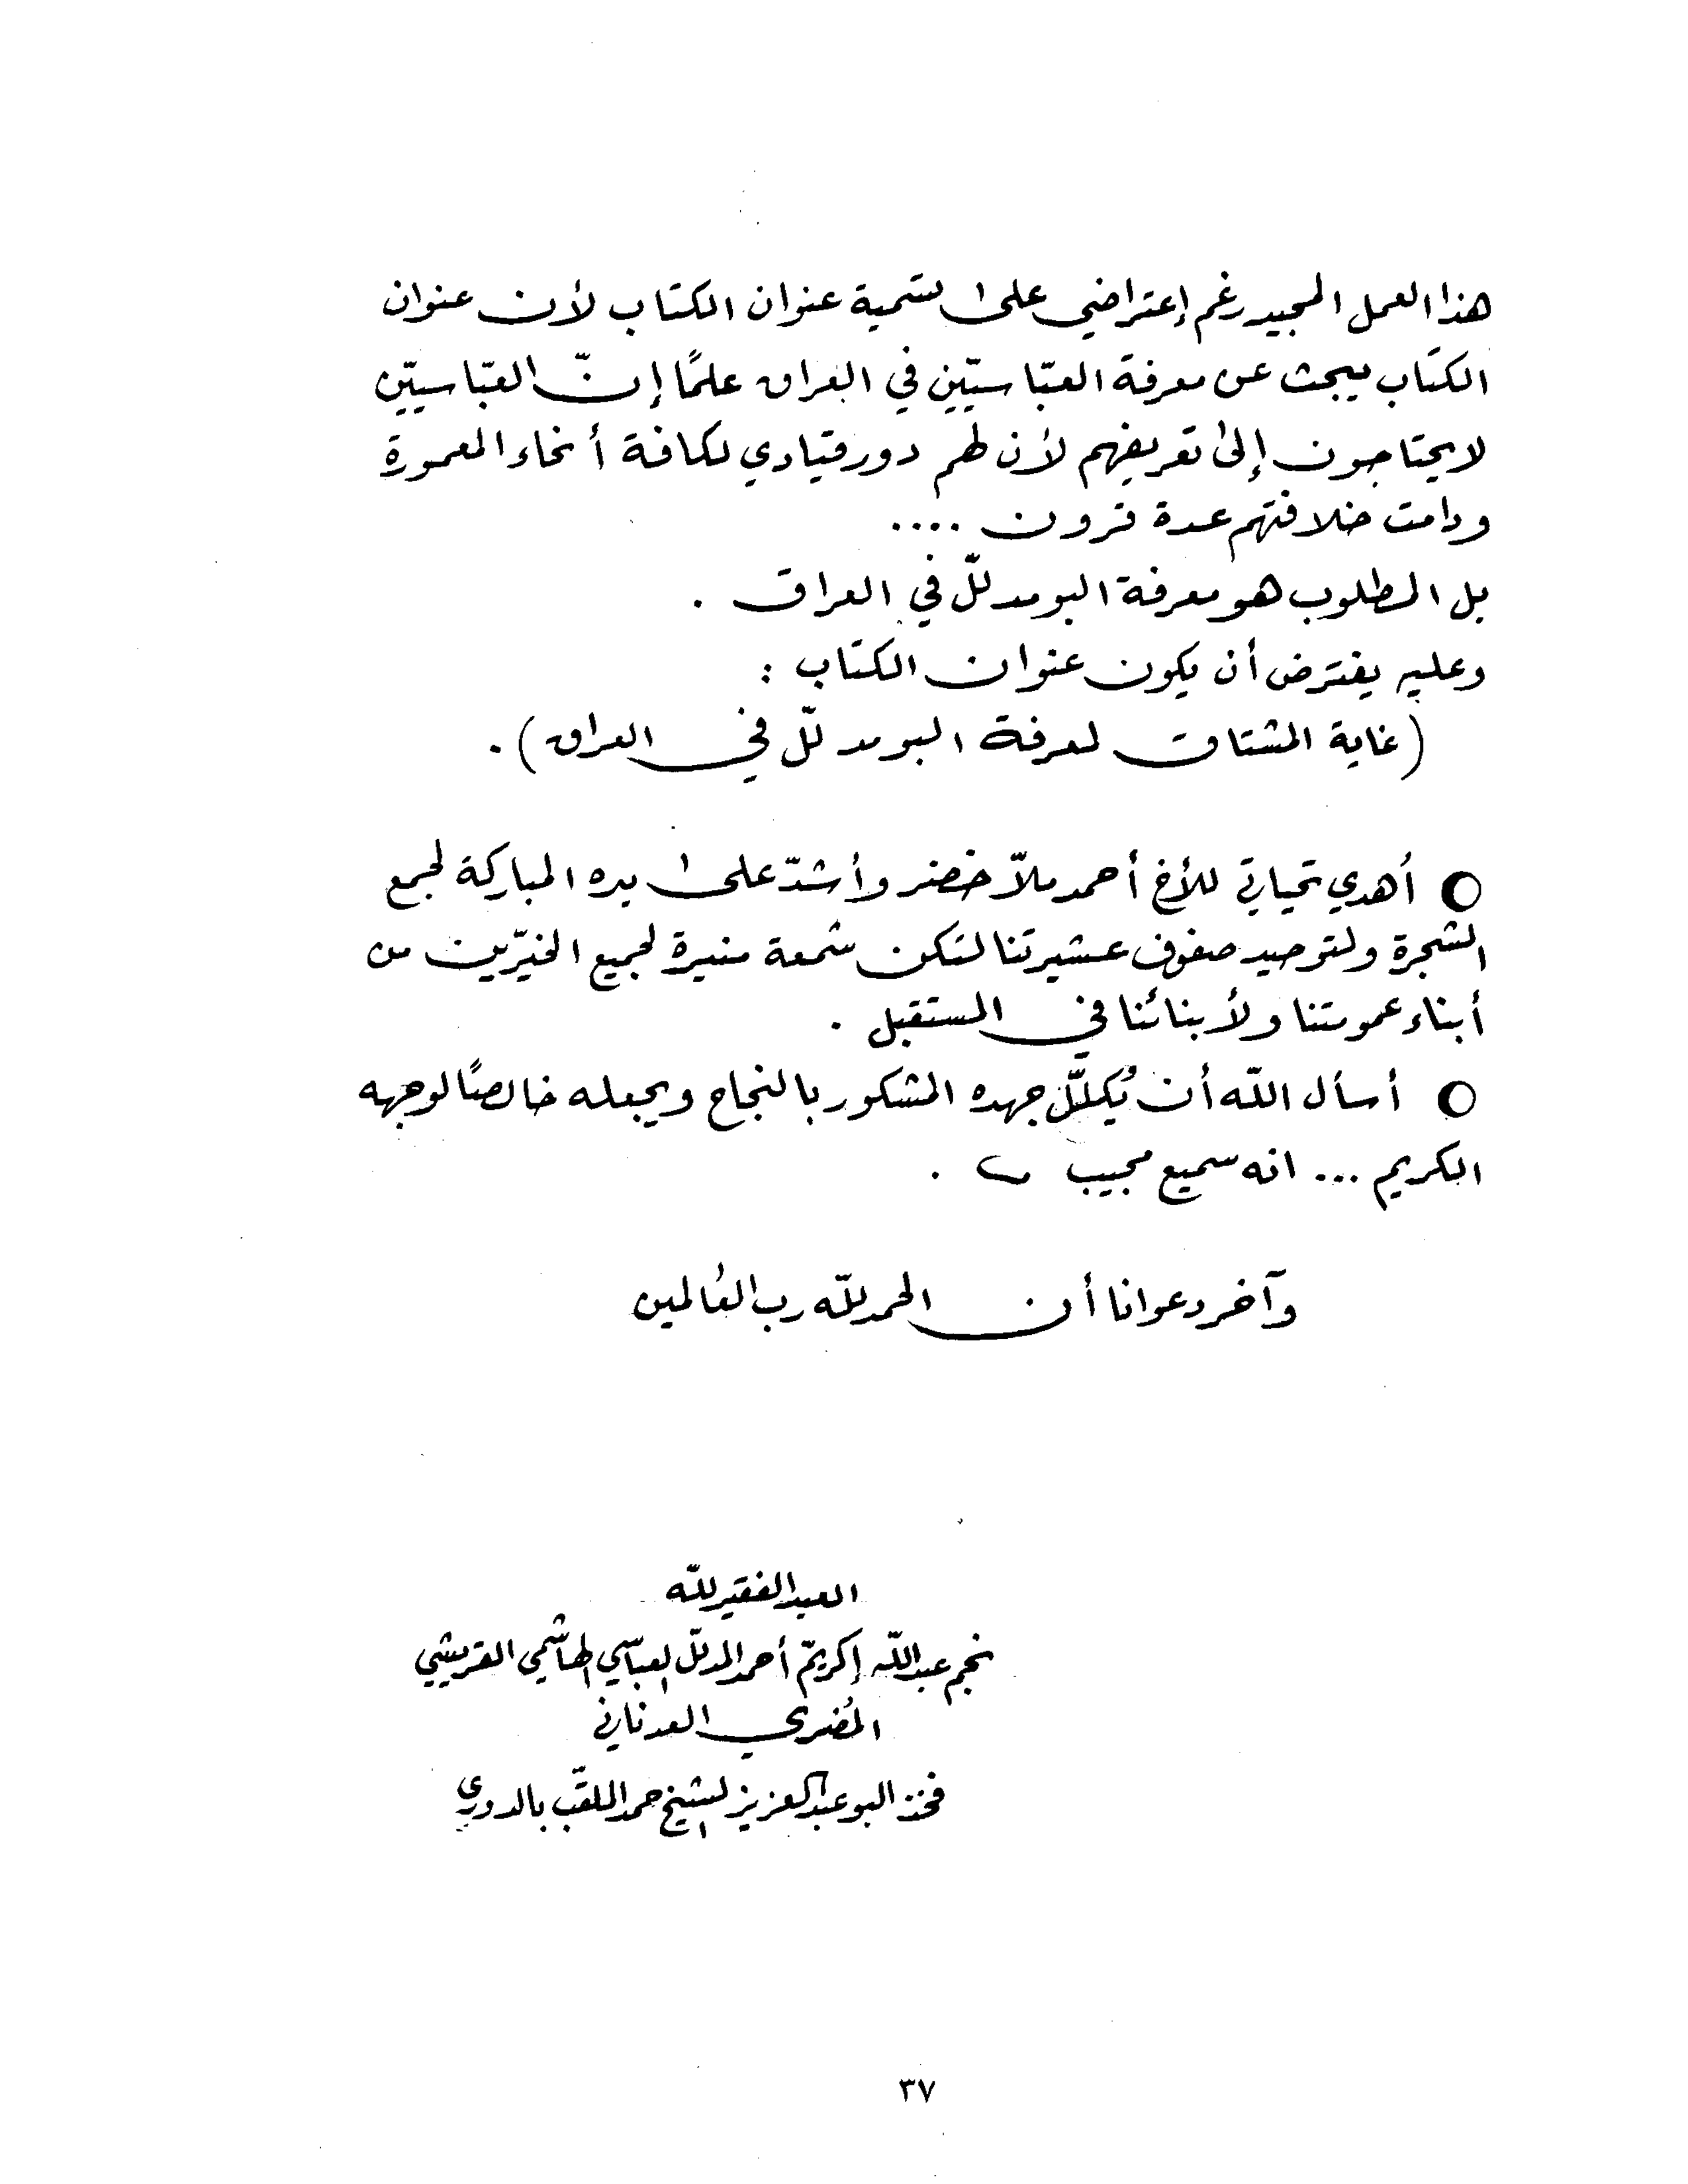 هذا العمل المجيد رغم إعتراضي على تسمية عنوان الكتاب لأن عنوان
الكتاب يبحث عن معرفة العبّاسيّين في العراق علمًا إنّ العبّاسييّن
لا يحتاجون إلى تعريفهم لأن لهم دور قيادي لكافة أنحاء المعمورة
ودامت خلافتهم عدة قرون ....
بل المطلوب هو معرفة البو مدلّل في العراق .
وعليه يفترض أن يكون عنوان الكتاب :
(غاية المشتاق لمعرفة البو مدلّل في العراق) .
○ أهدي تحياتي للأخ أحمد ملاّ خضر وأشدّ على يده المباركة لجمع
الشجرة ولتوحيد صفوف عشيرتنا لتكن شمعة منيرة لجميع الخيّرين من
أبناء عمومتنا ولأبنائنا في المستقبل .
○ أسأل اللّه أن يُكلّل جهده المشكور بالنجاح ويجعله خالصًا لوجهه
الكريم ... انه سميع مجيب .
وآخر دعوانا أن الحمد للّه رب العالمين
العبد الفقير للّه
نجم عبداللّه إكريّم أحمد المدلّل العبّاسي الهاشمي القريشي
المُضري العدناني
فخذ البو عبد العزيز الشيخ حمد الملقّب بالدوري
٣٧